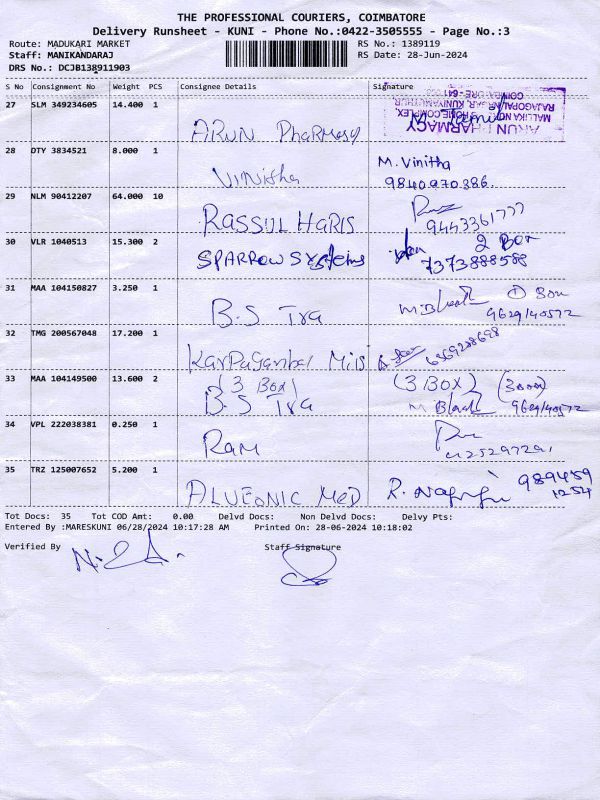 THE PROFESSIONAL COURIERS, COIMBATORE
Delivery Runsheet - KUNI - Phone No.:0422-3505555 - Page No.:3
Route: MADUKARI MARKET RS No.: 1389119
Staff: MANIKANDARAJ RS Date: 28-Jun-2024
DRS No.: DCJB138911903
S No Consignment No Weight PCS Consignee Details Signature
27 SLM 349234605 14.400 1 ARUN PHARMACY
ARUN PHARMACY
HOME COMPLEX
RAJAGOPAL NAGAR, KUNIYAMUTHUR
COIMBATORE - 641
28 DTY 3834521 8.000 1 Vinitha M. Vinitha
9840970386.
29 NLM 90412207 64.000 10 RASSUL HARIS
9443361777
30 VLR 1040513 15.300 2 SPARROW Systems 2 Box
7373888588
31 MAA 104150827 3.250 1 B.S Tra 1 Box
9629140572
32 TMG 200567048 17.200 1
33 MAA 104149500 13.600 2 (3 Box) (3 BOX) (3 Box)
B.S Tra 9629140572
34 VPL 222038381 0.250 1 Ram
35 TRZ 125007652 5.200 1 MED R. 989459
1254
Tot Docs: 35 Tot COD Amt: 0.00 Delvd Docs: Non Delvd Docs: Delvy Pts:
Entered By :MARESKUNI 06/28/2024 10:17:28 AM Printed On: 28-06-2024 10:18:02
Verified By Staff Signature